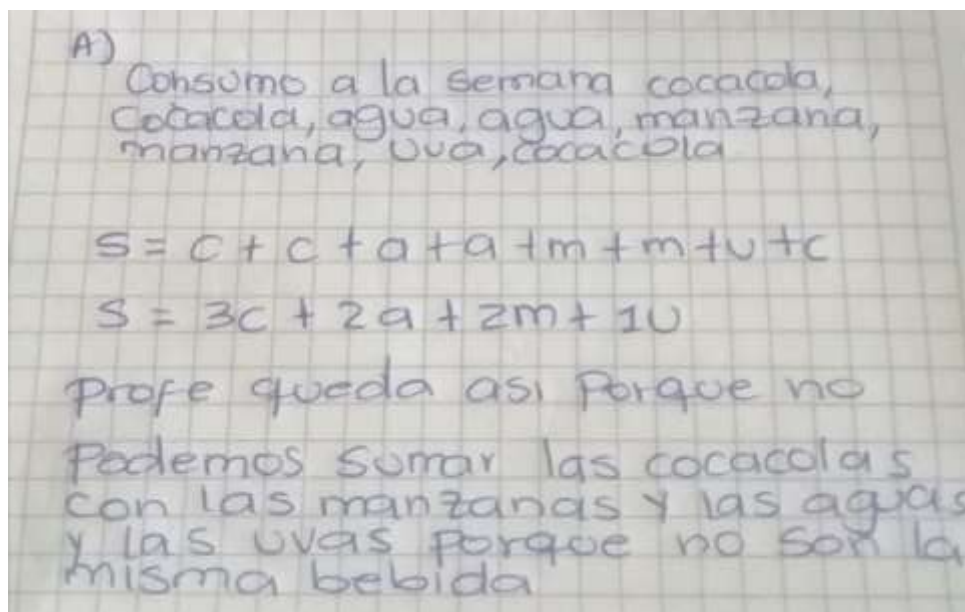 A)
Consumo a la semana cocacola,
Cocacola, agua, agua, manzana,
manzana, uva, cocacola
S = c + c + a + a + m + m + u + c
S = 3c + 2a + 2m + 1u
Profe queda asi Porque no
Podemos sumar las cocacolas
con las manzanas y las aguas
y las uvas porque no son la
misma bebida